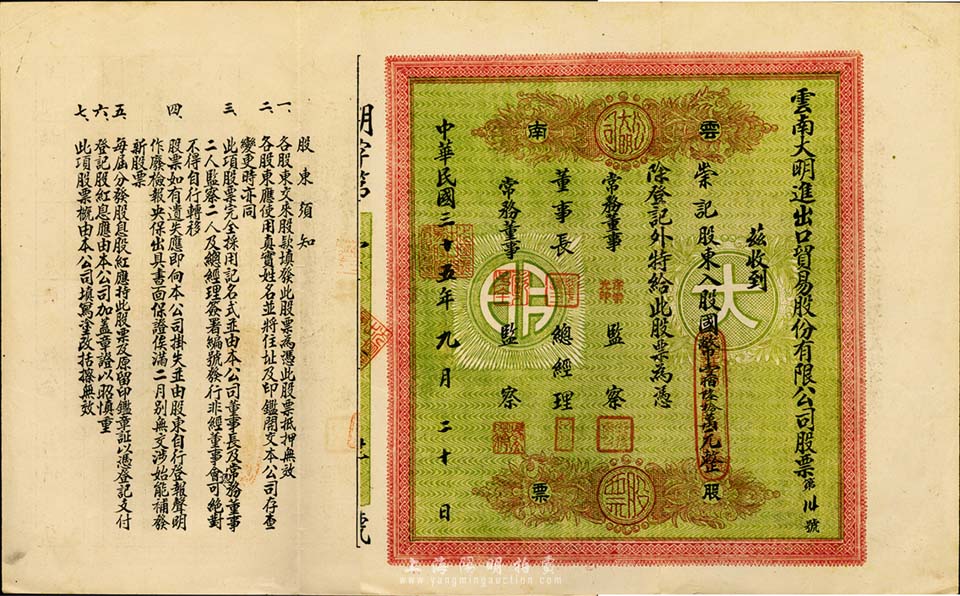 雲南大明進出口貿易股份有限公司股票第 號
茲收到
崇記股東入股國幣 萬元整
除登記外特給此股票為憑
常務董事 監察
董事長 總經理
常務董事 監察
中華民國三十五年九月二十日
雲南
大明公司
股票
股票
大
明
明字第 號
股東須知
一、各股東交來股款填發此股票為憑此股票抵押無效
二、各股東應使用真實姓名並將住址及印鑑開交本公司存查
變更時亦同
三、此項股票完全採用記名式並由本公司董事長及常務董事
二人監察二人及總經理簽署編號發行非經董事會可絕對
不得自行轉移
四、股票如有遺失應即向本公司掛失並由股東自行登報聲明
作廢檢報央保出具書面保證俟滿二月別無交涉始能補發
新股票
五、每屆分發股息股紅應持此股票及原留印鑑章証以憑登記支付
六、登記股紅息應由本公司加蓋章證以昭慎重
七、此項股票概由本公司填寫塗改括擦無效
上海陽明拍賣
www.yangmingauction.com